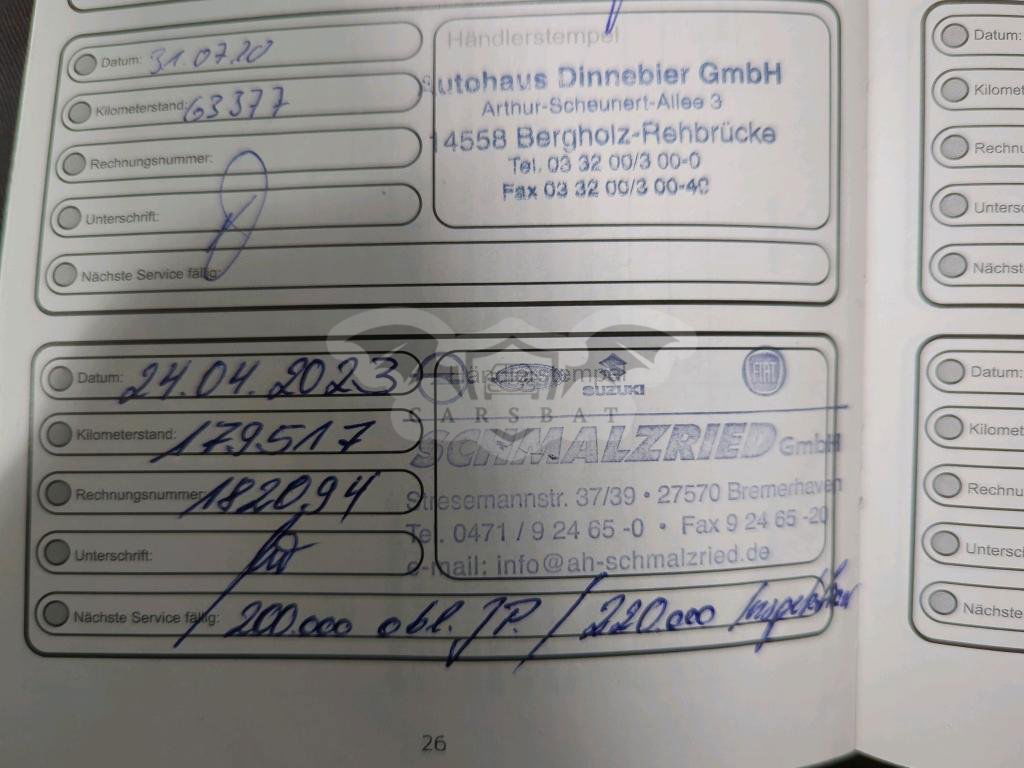 Datum: 31.07.20
Kilometerstand: 63377
Rechnungsnummer:
Unterschrift:
Nächste Service fällig:
Händlerstempel
utohaus Dinnebier GmbH
Arthur-Scheunert-Allee 3
14558 Bergholz-Rehbrücke
Tel. 03 32 00/3 00-0
Fax 03 32 00/3 00-40
Datum: 24.04.2023
Kilometerstand: 179517
Rechnungsnummer: 182094
Unterschrift:
Nächste Service fällig: 200.000 obl. JP. / 220.000 Inspektion
Händlerstempel
SUZUKI
FIAT
CARSBAT
SCHMALZRIED GmbH
Stresemannstr. 37/39 • 27570 Bremerhaven
Tel. 0471 / 9 24 65 -0 • Fax 9 24 65 -20
e-mail: info@ah-schmalzried.de
26
Datum:
Kilomet
Rechnu
Untersc
Nächst
Datum:
Kilomet
Rechnu
Untersch
Nächste